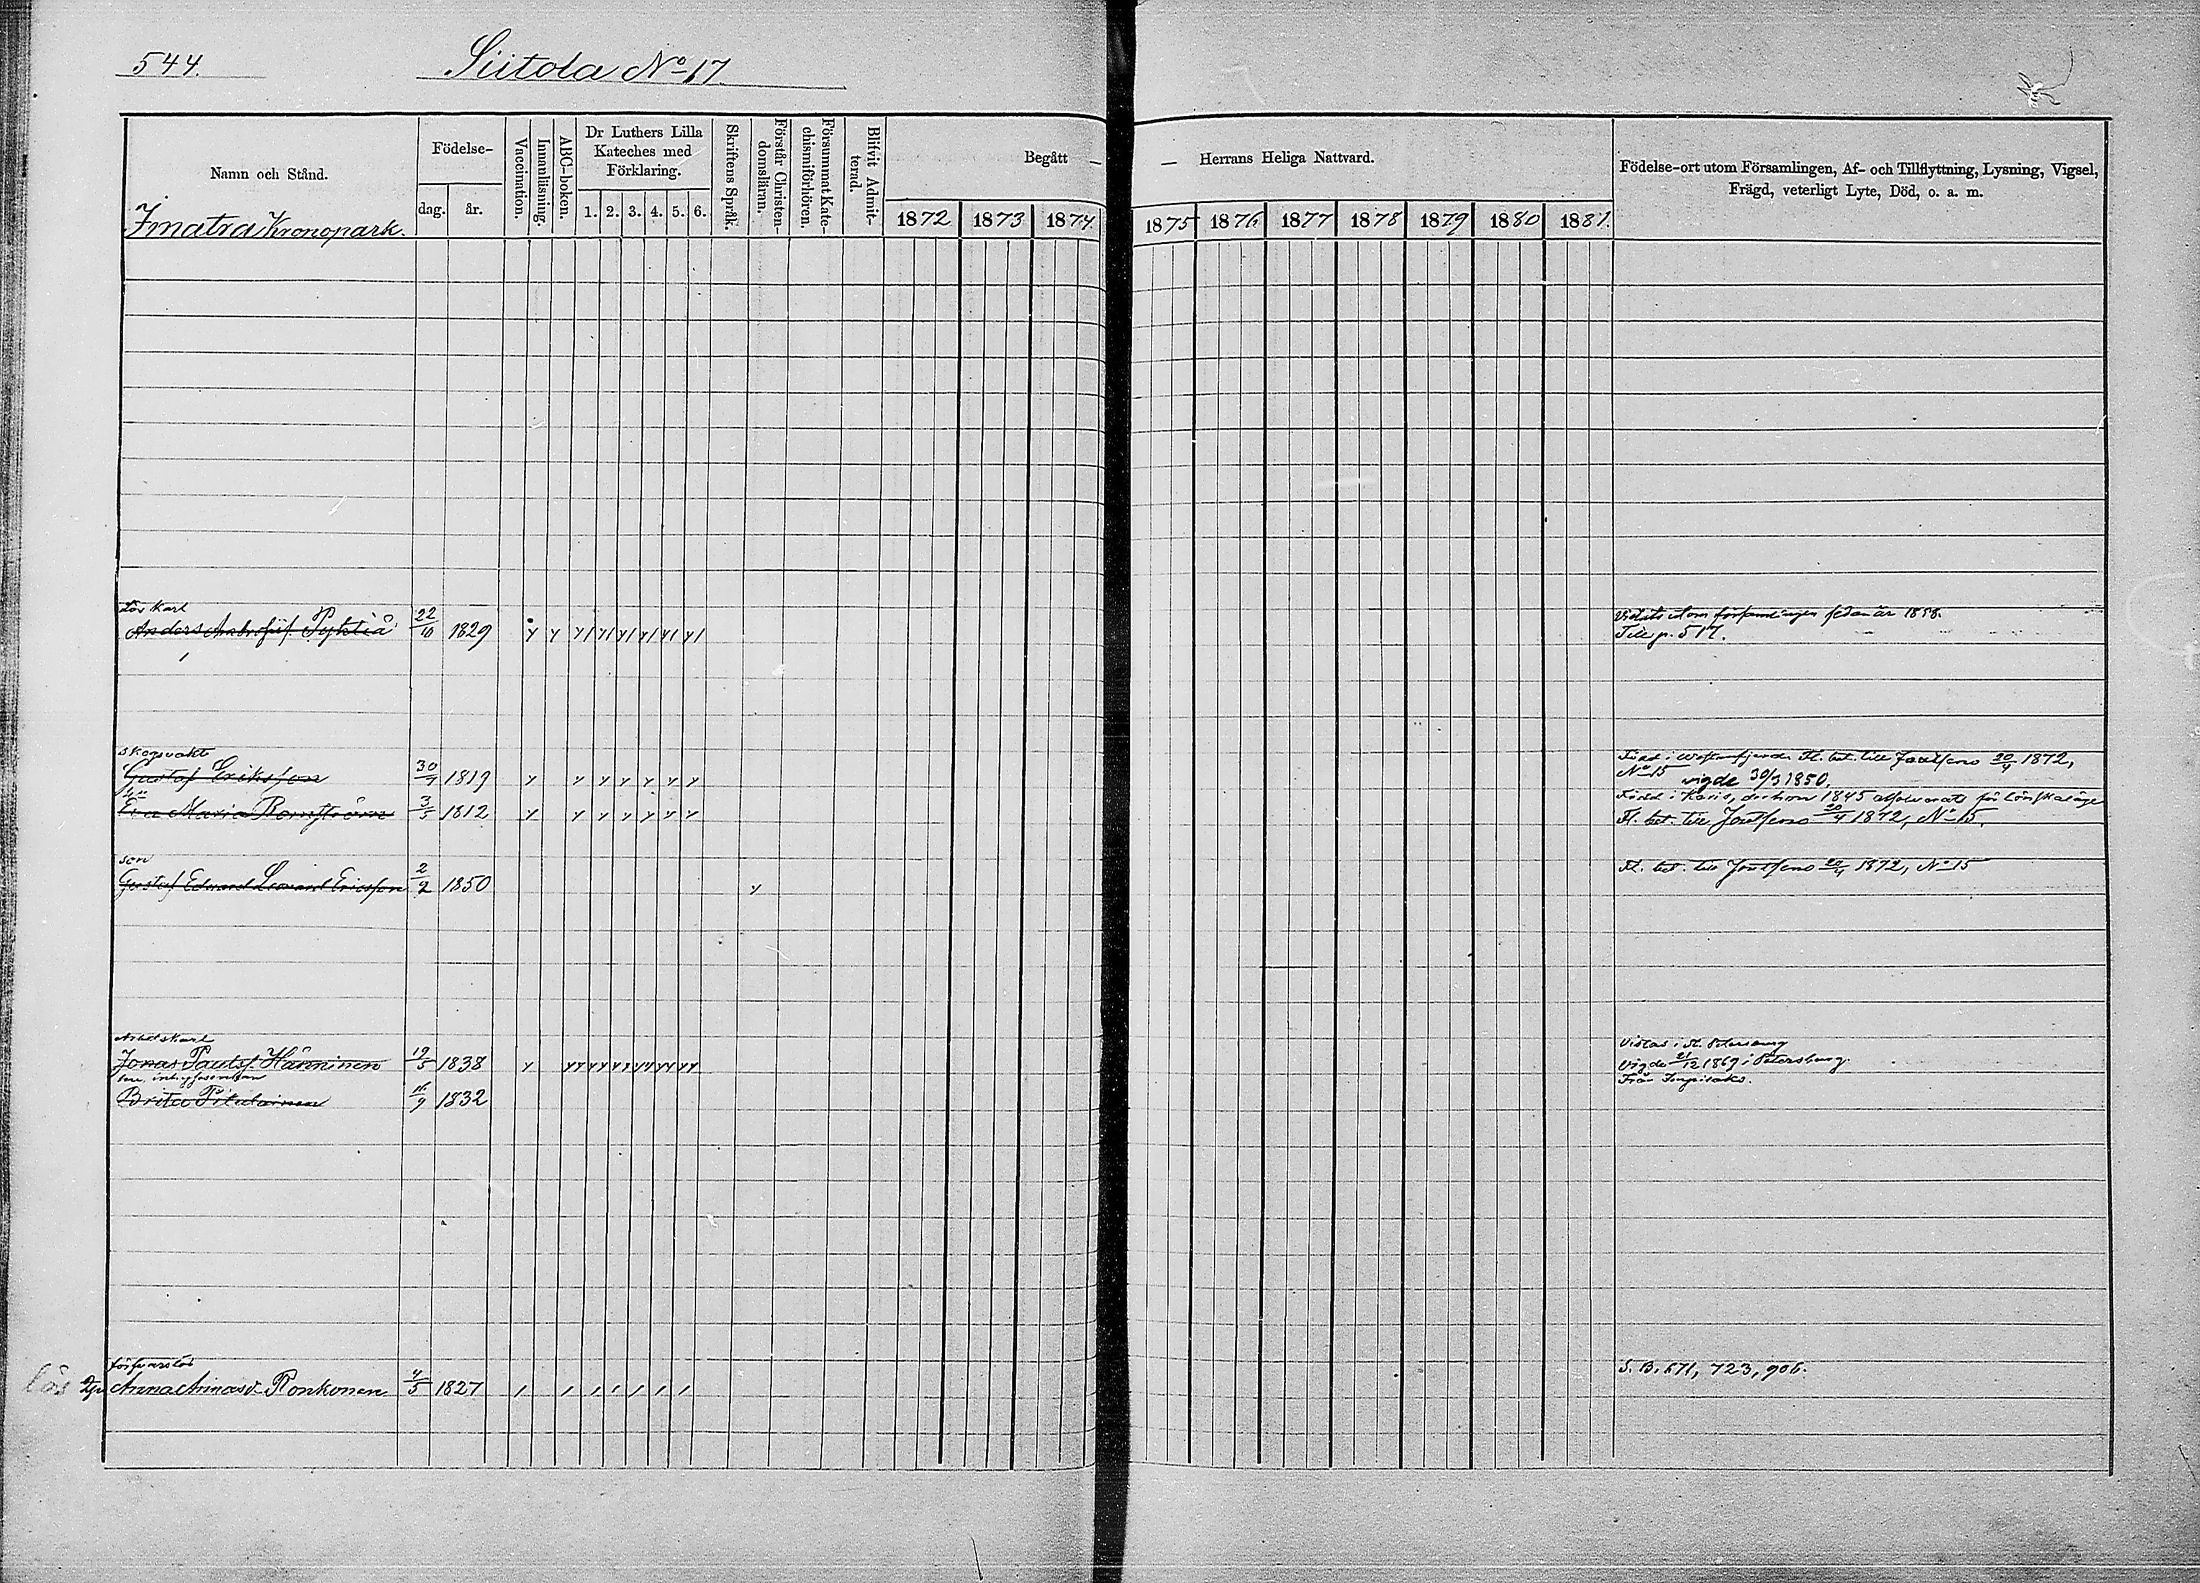 544.
Siitola No 17
Namn och Stånd.
Födelse-
dag. år.
Vaccination.
Innanläsning.
ABC-boken.
Dr Luthers Lilla Kateches med Förklaring.
1. 2. 3. 4. 5. 6.
Skriftens Språk.
Förstår Christen-domsläran.
Försummat Kate-chismiförhören.
Blifvit Admit-terad.
Begått — — Herrans Heliga Nattvard.
1872 1873 1874. 1875 1876 1877 1878 1879 1880 1881.
Födelse-ort utom Församlingen, Af- och Tillflyttning, Lysning, Vigsel,
Frägd, veterligt Lyte, Död, o. a. m.
Imatra Kronopark.
Karl
Anders 22/10 1829
församlingen sedan år 1858.
Till p. 517.
Skogsvakt
Gustaf Eriksson 30/7 1819
Född i Fl. bet. till 20/4 1872,
No 15 vigde 30/3 1850.
Eva Maria Romström 3/5 1812
Född i Karis, 1845
Fl. bet. till 20/4 1872, No 15.
son
Gustaf Eduard Leonard Ericsson 2/2 1850
Fl. bet. till 20/4 1872, No 15
Arbetskarl
Jonas Paulsf. Hänninen 19/5 1838
Vistas i St. Petersburg
Vigde 21/12 1869 i Petersburg.
Brita 1832
Från Impilaks.
försvarslös
lös Anna Ronkonen 4/5 1827
S. B. 671, 723, 906.